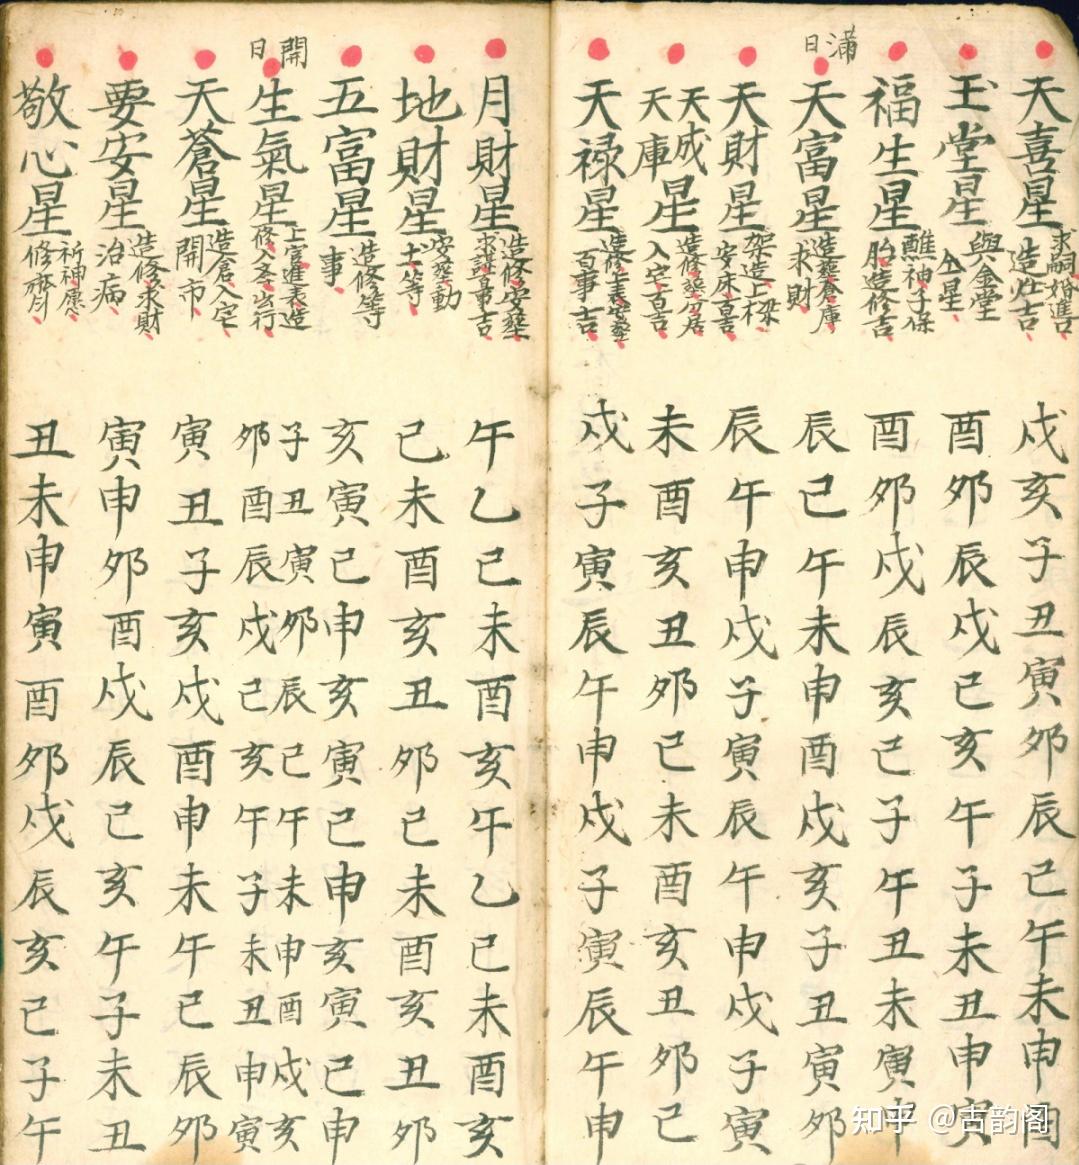 天喜星
求嗣婚進
造灶吉
戌亥子丑寅卯辰巳午未申酉
玉堂星
與金堂
星
酉卯辰戌巳亥午子未丑申寅
福生星
醮神子保
胎造修吉
酉卯戌辰亥巳子午丑未寅申
滿日
天富星
造葬倉庫
求財
辰巳午未申酉戌亥子丑寅卯
天財星
架造上樑
安床百吉
辰午申戌子寅辰午申戌子寅
天成
天庫
星
造修分居
入宅百吉
未酉亥丑卯巳未酉亥丑卯巳
天禄星
造修上表安葬
百事吉
戌子寅辰午申戌子寅辰午申
月財星
造修安葬
求謀吉
午乙巳未酉亥午乙巳未酉亥
地財星
安葬動
土等
巳未酉亥丑卯巳未酉亥丑卯
五富星
造修等
事
亥寅巳申亥寅巳申亥寅巳申
開日
生氣星
上官進表造
修入出行
子丑寅卯辰巳午未申酉戌亥
卯酉辰戌巳亥午子未丑申寅
天蒼星
造倉入宅
開市
寅丑子亥戌酉申未午巳辰卯
要安星
造修求財
治病
寅申卯酉戌辰巳亥午子未丑
敬心星
祈神愿
修
丑未申寅酉卯戌辰亥巳子午
知乎 @古韵阁